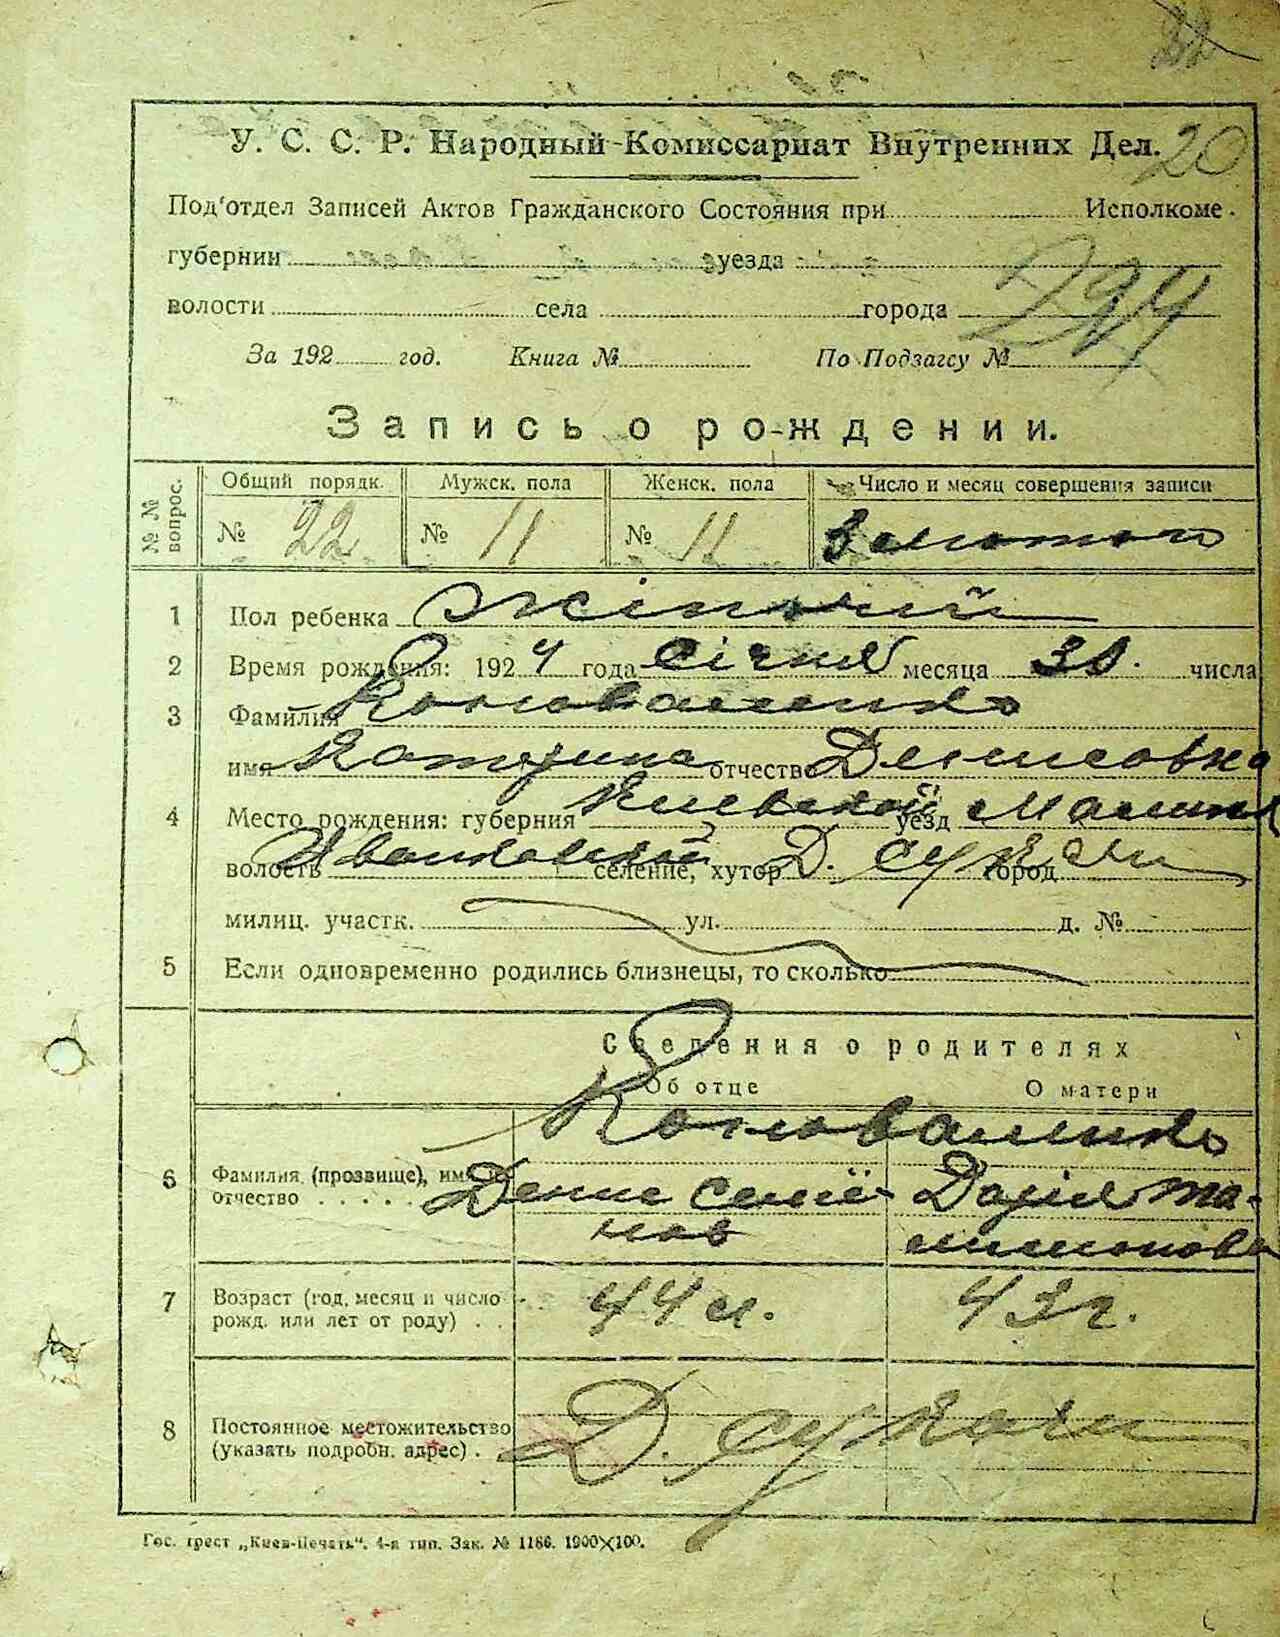 22
У. С. С. Р. Народный Комиссариат Внутренних Дел. 20
Под'отдел Записей Актов Гражданского Состояния при Исполкоме.
губернии уезда
волости села города
224
За 192 год. Книга № По Подзагсу №
Запись о рождении.
№№ вопрос. Общий порядк. Мужск. пола Женск. пола Число и месяц совершения записи
№ 22 № 11 № 11 3 лютого
1 Пол ребенка жіночий
2 Время рождения: 1924 года Січня месяца 30. числа
3 Фамилия Коноваленко
имя Катерина отчество Денисовна
4 Место рождения: губерния Киевской уезд Малинск
волость Иванковской селение, хутор Д. Сукачи город
милиц. участк. ул. д. №
5 Если одновременно родились близнецы, то сколько
Сведения о родителях
Об отце О матери
Коноваленко
6 Фамилия (прозвище), имя и отчество Денис Семе- Дарія
нов
7 Возраст (год, месяц и число рожд. или лет от роду) 44 л. 43 г.
8 Постоянное местожительство (указать подробн. адрес) Д. Сукачи
Гос. трест „Киев-Печать“. 4-я тип. Зак. № 1186. 1900×100.